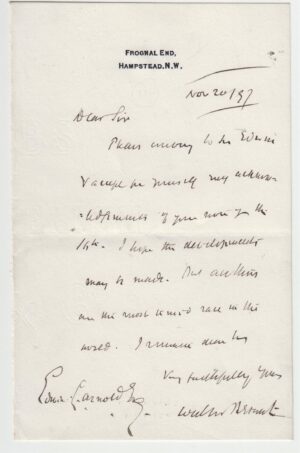 FROGNAL END,
HAMPSTEAD, N.W.
Nov 20/97
Dear Sir
Please convey to Sir Edwin
& accept for yourself my acknow
-ledgements of your note of the
I hope the developments
may be made. But authors
are the most timid race in the
world. I remain dear Sir
Very faithfully yours
Edwin L. Arnold Esq
Walter Besant